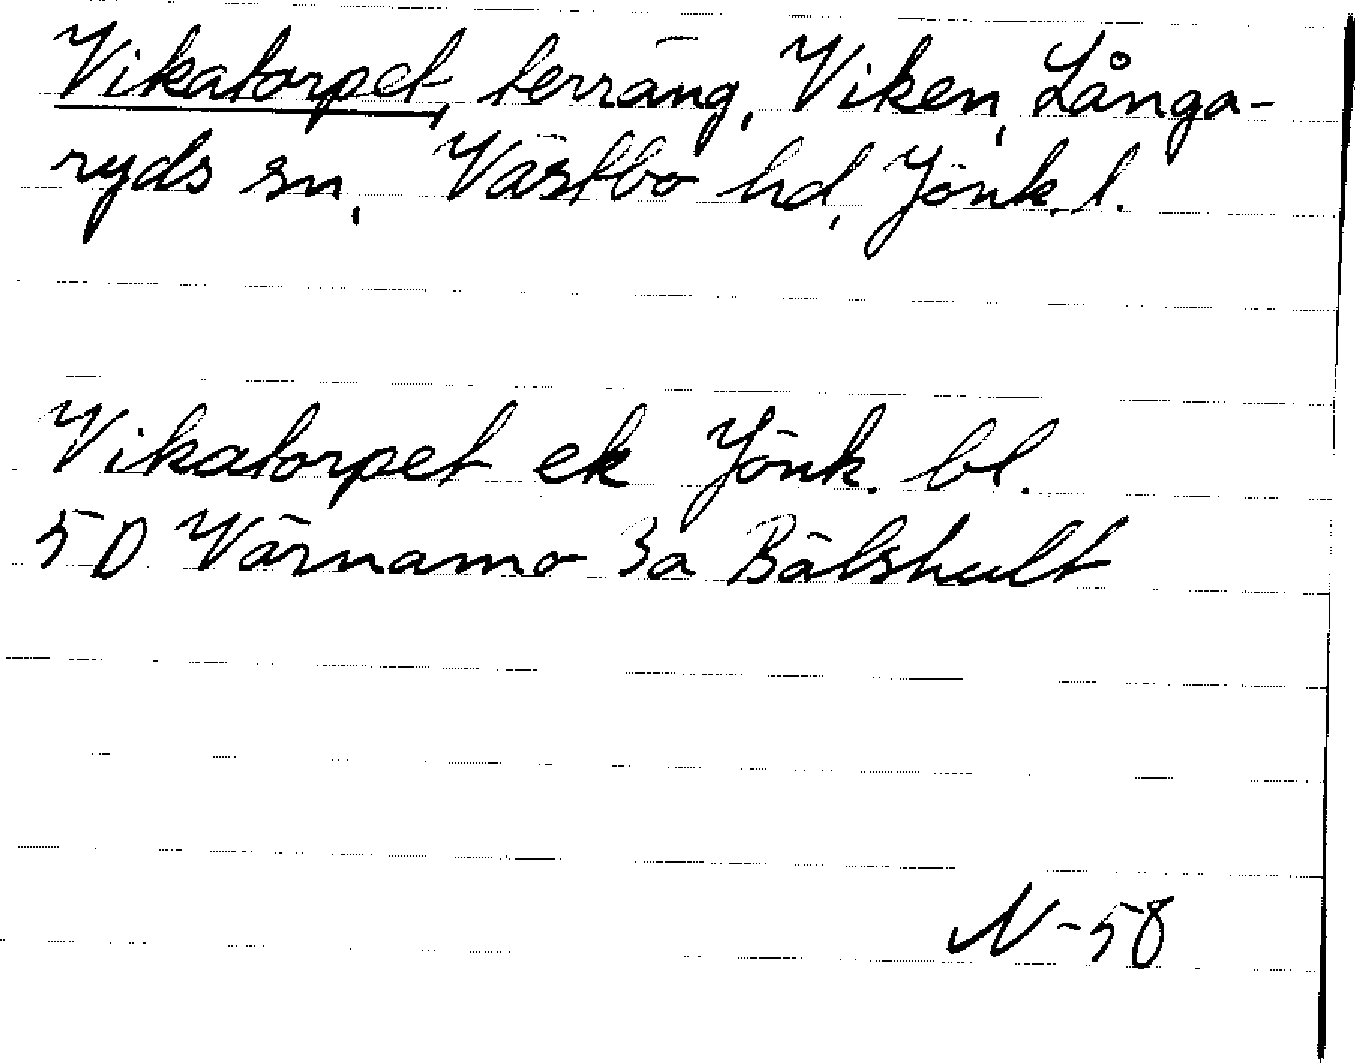 Vikatorpet, terräng, Viken, Långa-
ryds sn, Västbo hd, Jönk. l.
Vikatorpet ek Jönk. bl.
5 D Värnamo 3a Bälshult
N-58